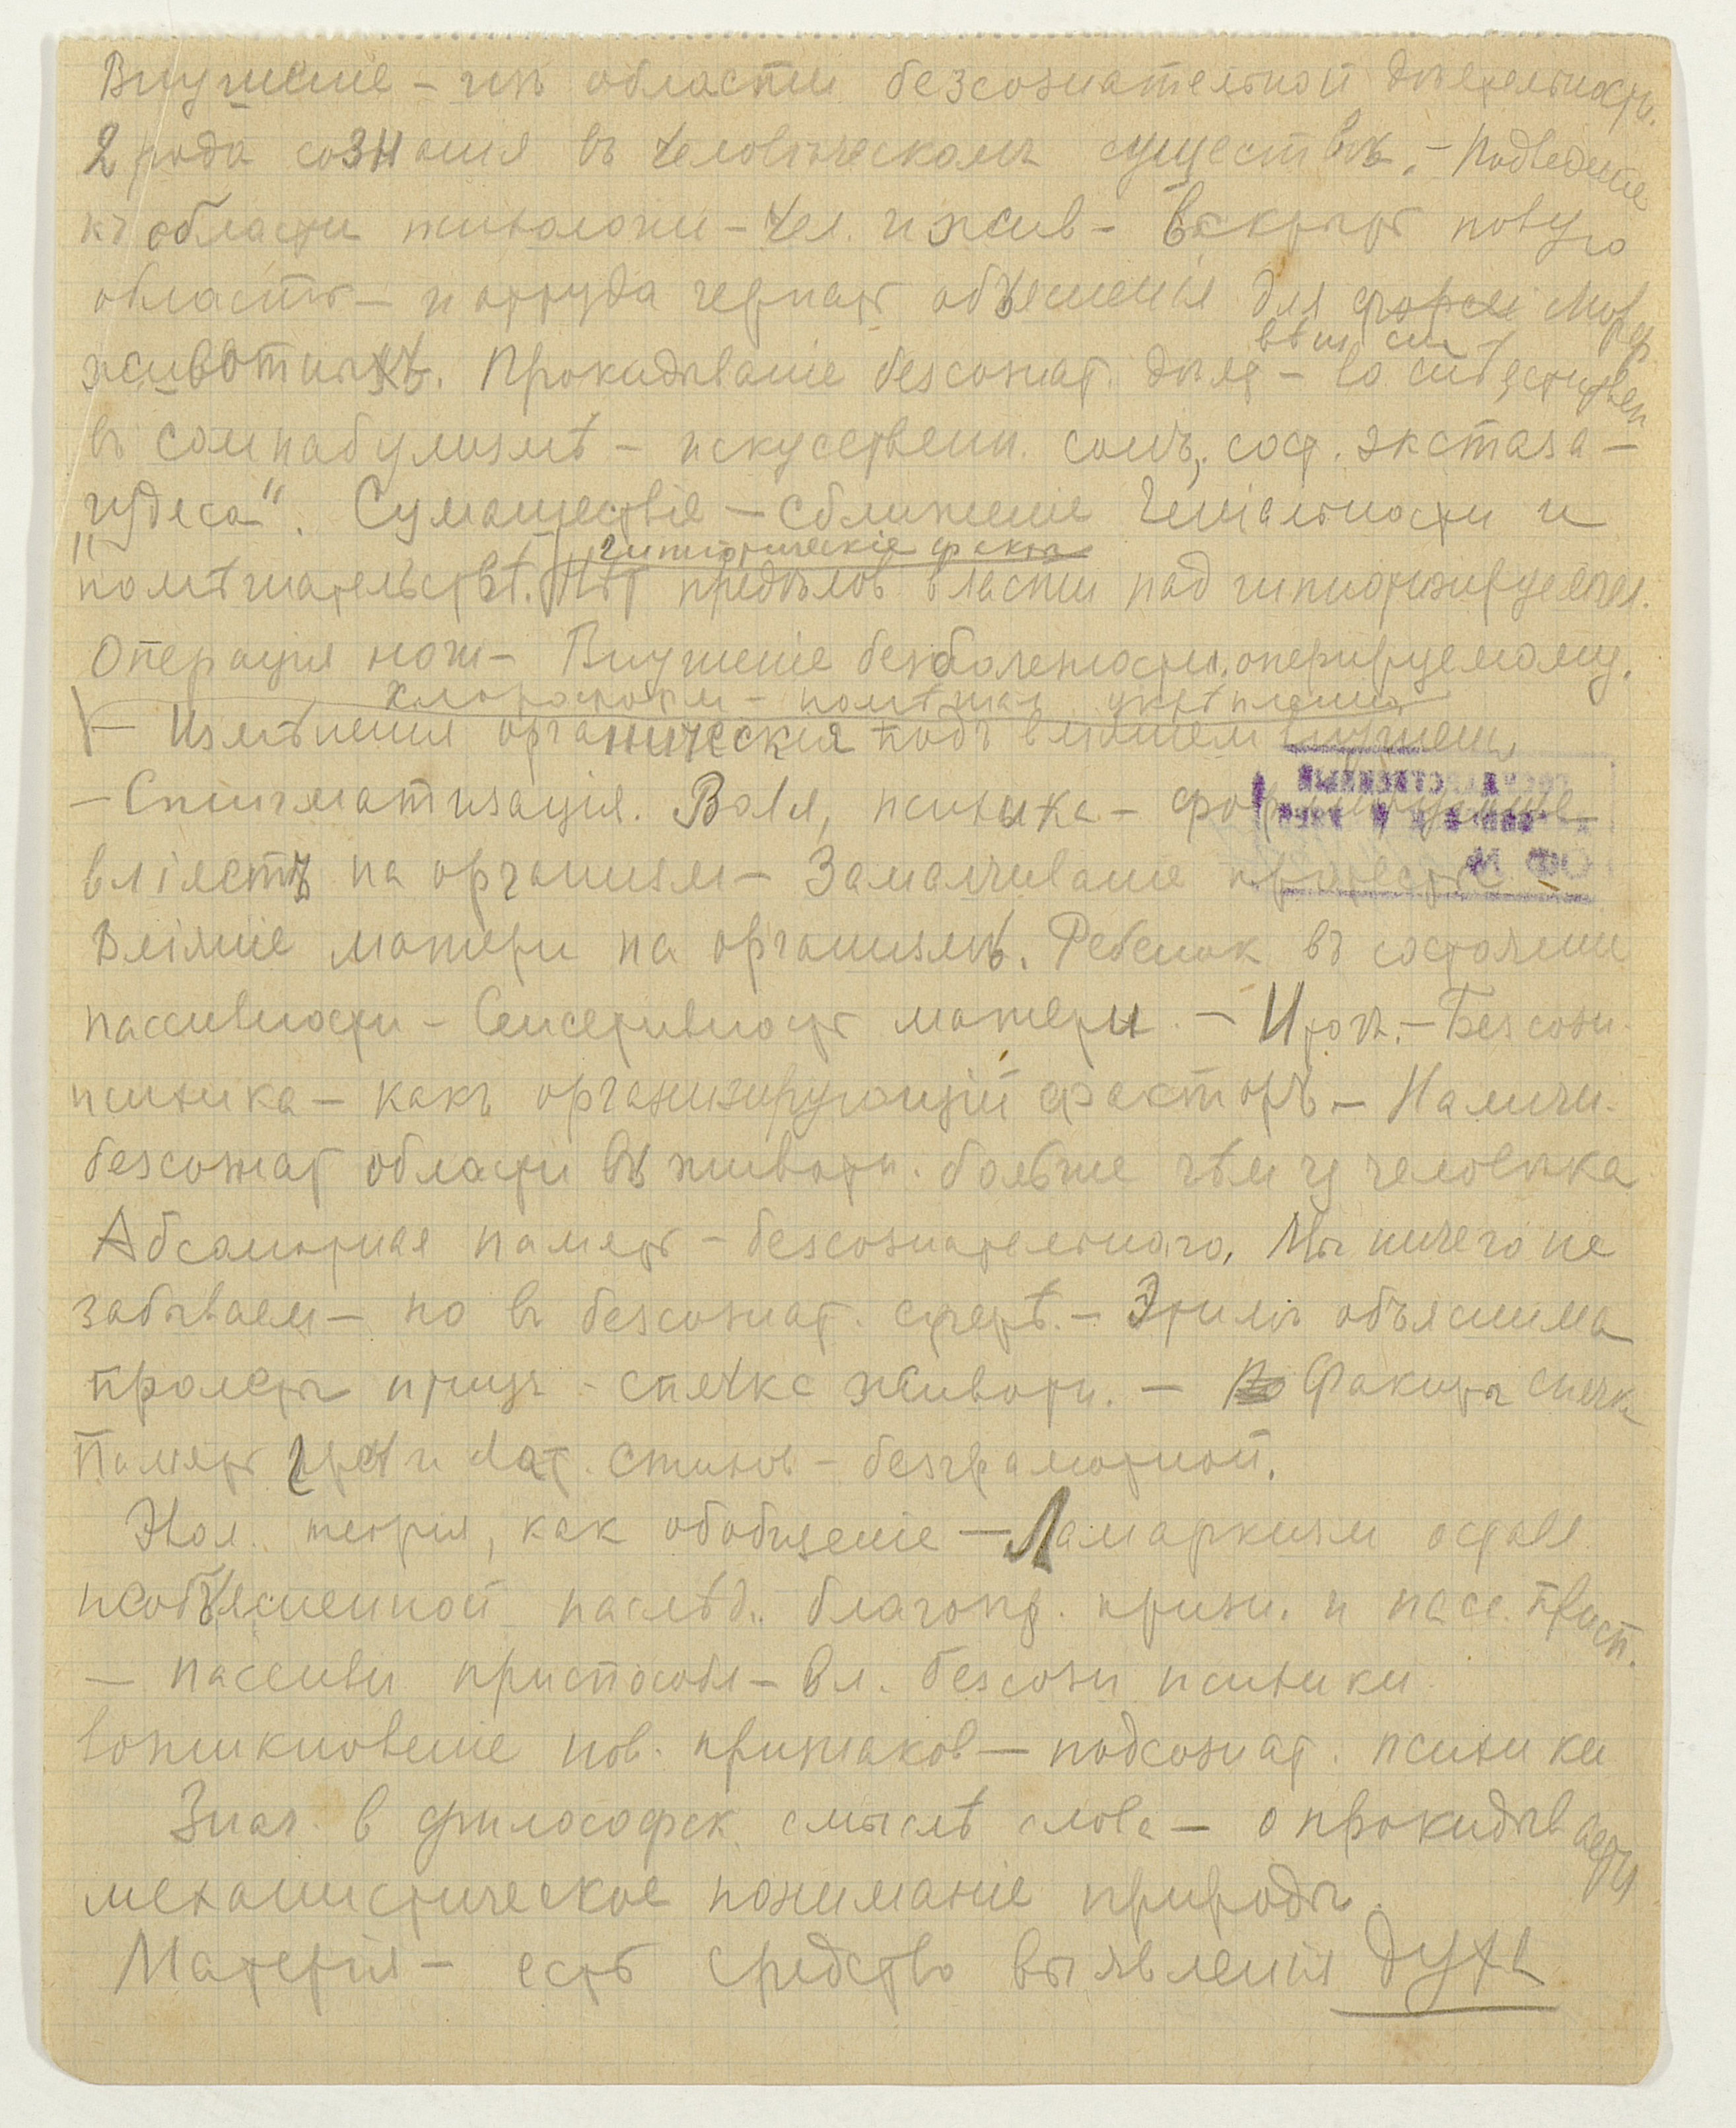 Внушеніе – изъ области безсознательной дѣятельности.
2 рода сознания въ человѣческомъ существѣ. – Подведение
къ области психологии – чел. и жив – вскрыть новую
область – и оттуда черпать объясненія для
животныхъ. Прокидываніе безсознат. дѣят – во снѣ, естествен
въ сомнабулизмѣ – искусствени. сонъ, сост. экстаза –
„чудеса". Сумашествіе – сближеніе геніальности и
гипнотическіе факты
помѣшательствѣ. Нѣт предѣлов власти над гипнотизируемым.
Операція нож – Внушеніе безболезности оперируемому.
хлороформ –
– Измѣнения органическия подъ вліянием внушен.
– Стигматизація. Воля, психика –
вліяетъ на организм – Замалчиваніе
Вліяніе матери на организмъ. Ребенок въ состоянии
пассивности – Сенсетивность матери. – Итогъ. – Безсозн.
психика – какъ организирующій факторъ – Наличн.
безсознат области въ животн. больше чѣм у человѣка
Абсолютная память – безсознательнаго. Мы ничего не
забываем – но въ безсознат. сферѣ. – Этимъ объяснима
пролеты птицъ – спячка животн. – Факиры спячка
Память греч и лат. стихов – безграмотной.
Эвол. теория, как обобщеніе – Ламаркизм оставл
необъясненной наслѣд. благопр. призн. и пасс. присп.
– пассивн приспособл – вл. безсозн психики
возникновеніе нов. признаков – подсознат. психики
Знач. в философск. смыслѣ слова – опрокидывается
механистическое пониманіе природы.
Матерія – есть средство выявленія духа